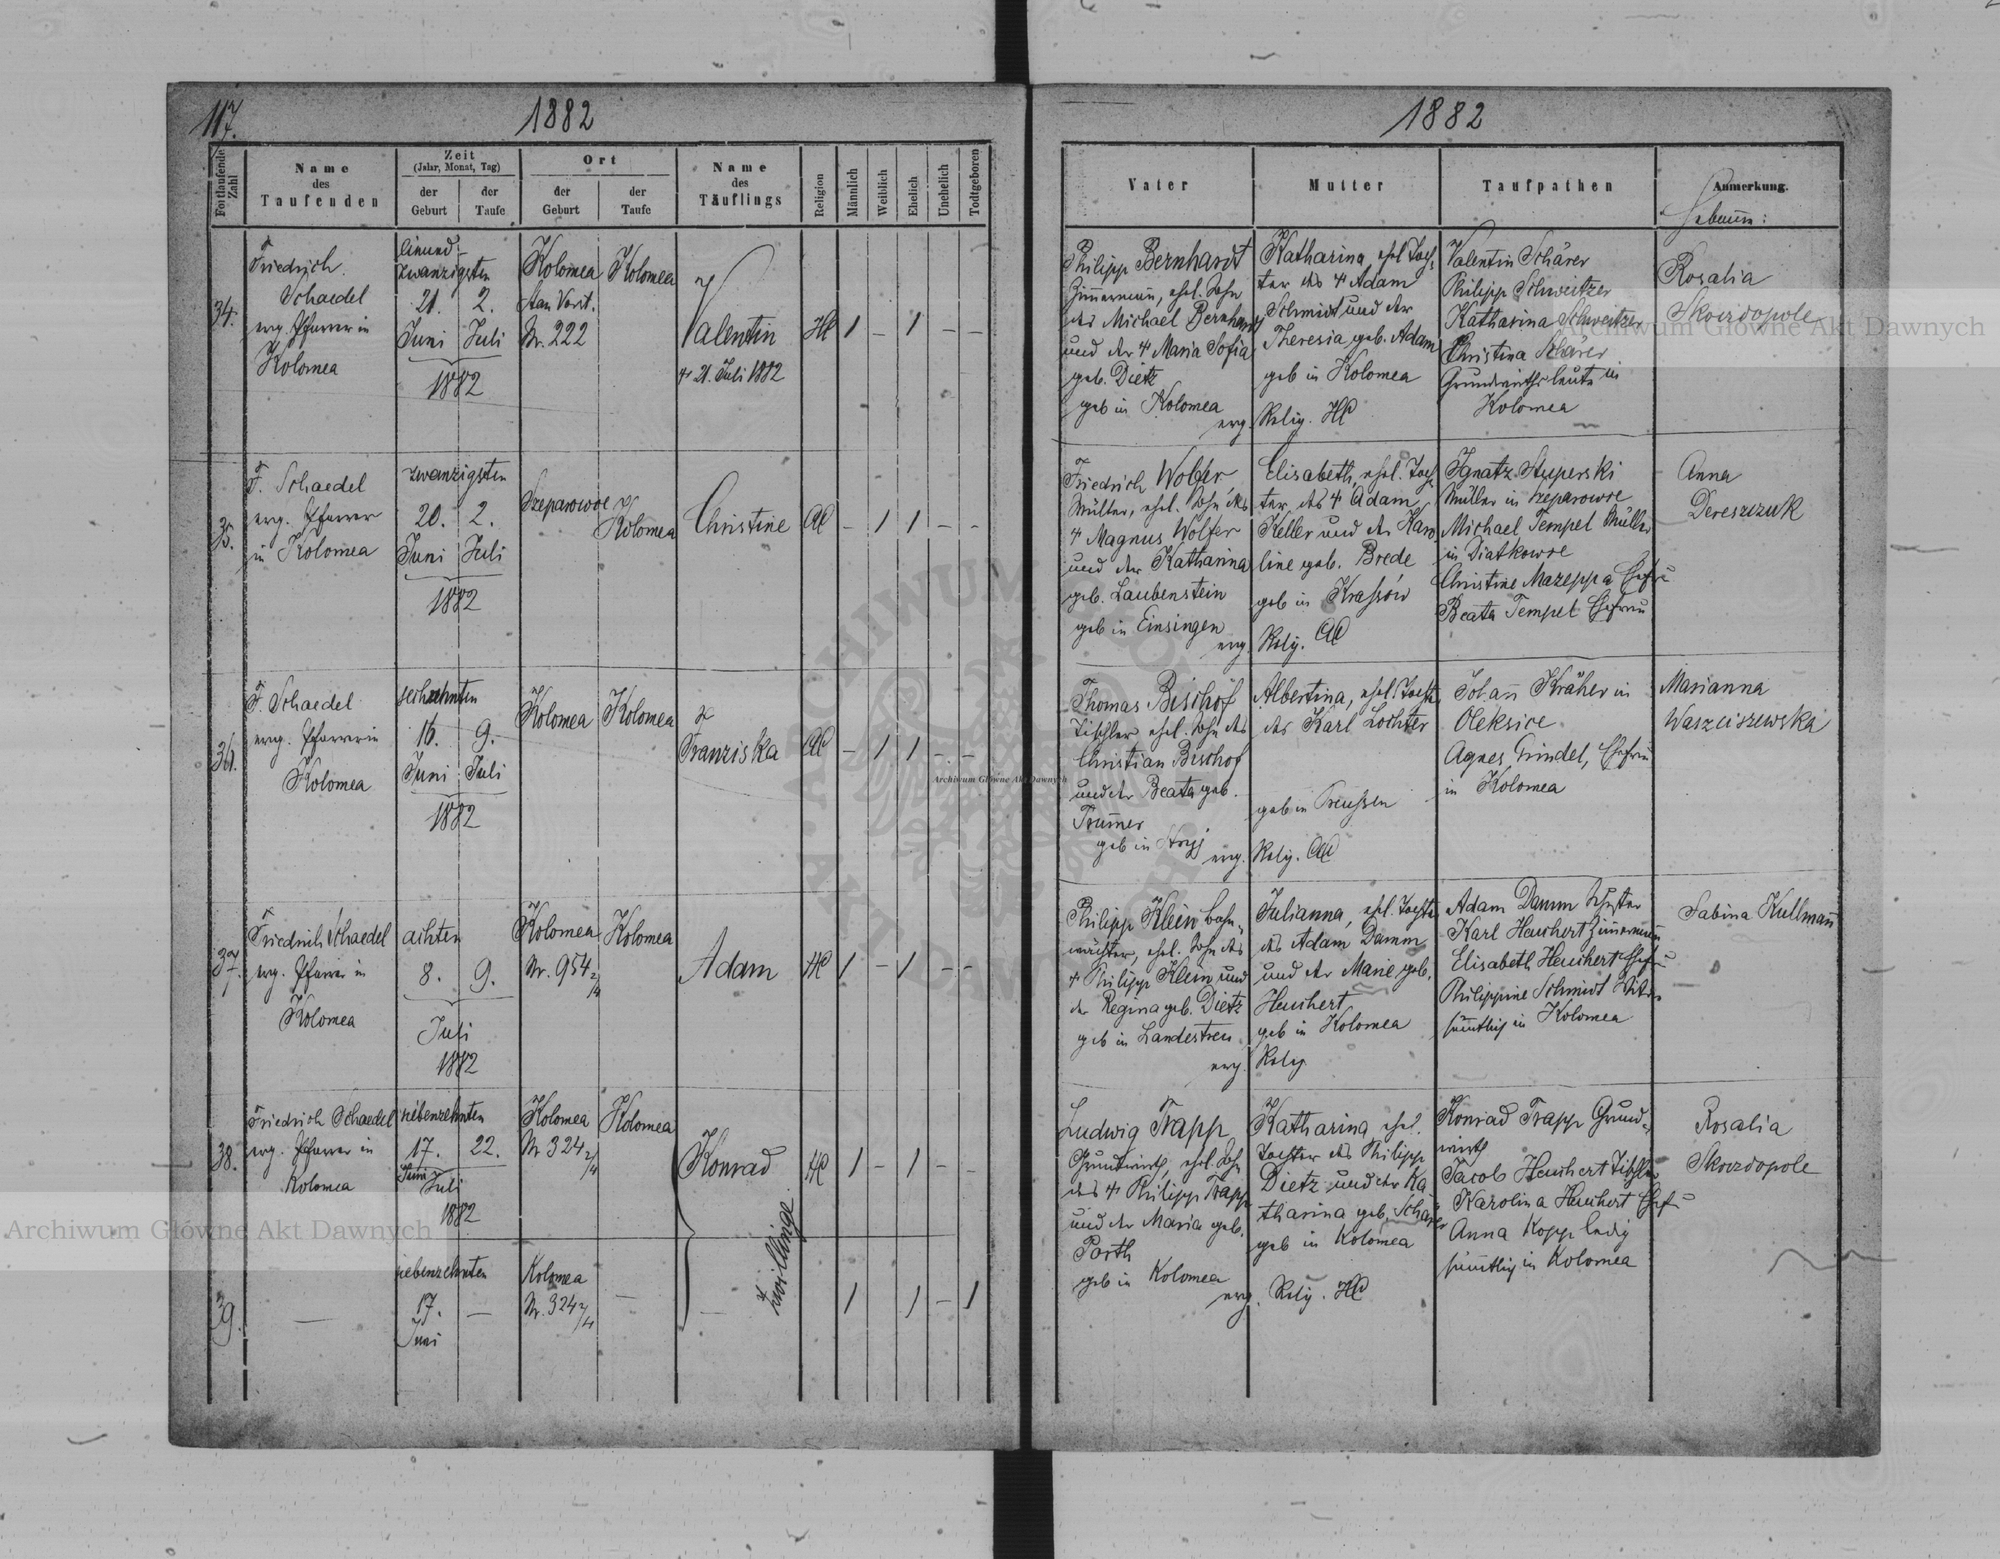 117.
1882
1882
Fortlaufende Zahl
Name
des
Taufenden
Zeit
(Jahr, Monat, Tag)
der
Geburt
der
Taufe
Ort
der
Geburt
der
Taufe
Name
des
Täuflings
Religion
Männlich
Weiblich
Ehelich
Unehelich
Todtgeboren
Vater
Mutter
Taufpathen
Anmerkung.
34.
Friedrich
Schaedel
evg. Pfarrer in
Kolomea
einund-
zwanzigsten
21. 2.
Juni Juli
1882
Kolomea
Nr. 222
Kolomea
Valentin
21. Juli 1882
HC
1 – 1 – –
Philipp Bernhardt
Zimmermann, ehel. Sohn
des Michael Bernhardt
und der Maria Sofia
geb. Dietz
geb in Kolomea
evg.
Katharina, ehel. Toch-
ter des Adam
Schmidt und der
Theresia geb. Adam
geb in Kolomea
Relig. HC
Valentin Schärer
Philipp Schweitzer
Katharina Schweitzer
Christina Schärer
Grundwirthsleute in
Kolomea
Rosalia
Skoizdopole
35.
F. Schaedel
evg. Pfarrer
in Kolomea
zwanzigsten
20. 2.
Juni Juli
1882
Szeparowce
Kolomea
Christine
AC
– 1 1 – –
Friedrich Wolfer
Müller, ehel. Sohn des
Magnus Wolfer
und der Katharina
geb. Laubenstein
geb in Einsingen
evg.
Elisabeth, ehel. Toch-
ter des Adam
Keller und der Karo
line geb. Brede
geb in Krassów
Relig. AC
Ignatz Stuperski
Müller in Szeparowce
Michael Tempel Müller
in Diatkowce
Christine Mazeppa Ehefrau
Beata Tempel Ehefrau
Anna
Dereszczuk
36.
F. Schaedel
evg. Pfarrer in
Kolomea
sechzehnten
16. 9.
Juni Juli
1882
Kolomea
Kolomea
Franziska
AC
– 1 1 – –
Thomas Bischof
Tischler ehel. Sohn des
Christian Bischof
und der Beata geb.
Trumer
geb in Stryj
evg.
Albertina, ehel. Tochter
des Karl Lochter
geb in Preussen
Relig. AC
Johann Kräher in
Oleksice
Agnes Findel, Ehefrau
in Kolomea
Marianna
Waszciszewska
37.
Friedrich Schaedel
evg. Pfarrer in
Kolomea
achten
8. 9.
Juli
1882
Kolomea
Nr. 954 2/4
Kolomea
Adam
HC
1 – 1 – –
Philipp Klein Bahn-
wächter, ehel. Sohn des
Philipp Klein und
der Regina geb. Dietz
geb in Landestreu
evg.
Julianna, ehel. Tochter
des Adam Damm
und der Marie geb.
Heuchert
geb in Kolomea
Relig
Adam Damm Schuster
Karl Heuchert Zimmermann
Elisabeth Heuchert Ehefrau
Philippine Schmidt
sämtlich in Kolomea
Sabina Kullmann
38.
Friedrich Schaedel
evg. Pfarrer in
Kolomea
siebenzehnten
17. 22.
Juni Juli
1882
Kolomea
Nr 324 2/4
Kolomea
Konrad
HC
1 – 1 – –
Ludwig Trapp
Grundwirth, ehel. Sohn
des Philipp Trapp
und der Maria geb.
Porth
geb in Kolomea
evg.
Katharina ehel.
Tochter des Philipp
Dietz und der Ka
tharina geb. Schärer
geb in Kolomea
Relig. HC
Konrad Trapp Grund-
wirth
Jacob Heuchert Tischler
Karolina Heuchert Ehefrau
Anna Kopp ledig
sämtlich in Kolomea
Rosalia
Skoizdopole
Zwillinge
39.
—
siebenzehnten
17. —
Juni
Kolomea
Nr. 324 2/4
—
—
1 1 – 1
Archiwum Główne Akt Dawnych
Archiwum Główne Akt Dawnych
Archiwum Główne Akt Dawnych